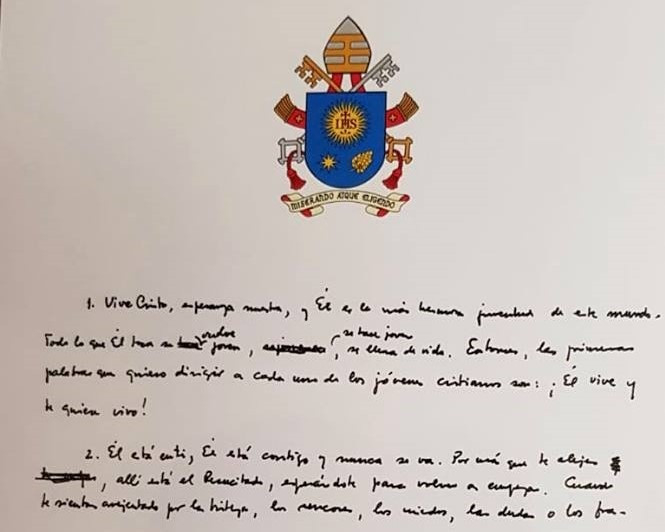 IHS
MISERANDO ATQUE ELIGENDO
1. Vive Cristo, esperanza nuestra, y Él es la más hermosa juventud de este mundo.
se hace joven
Todo lo que Él toca se vuelve joven, se llena de vida. Entonces, las primeras
palabras que quiero dirigir a cada uno de los jóvenes cristianos son: ¡Él vive y
te quiere vivo!
2. Él está en ti, Él está contigo y nunca se va. Por más que te alejes
, allí está el Resucitado, esperándote para volver a empezar. Cuando
te sientas avejentado por la tristeza, los rencores, los miedos, las dudas o los fra-